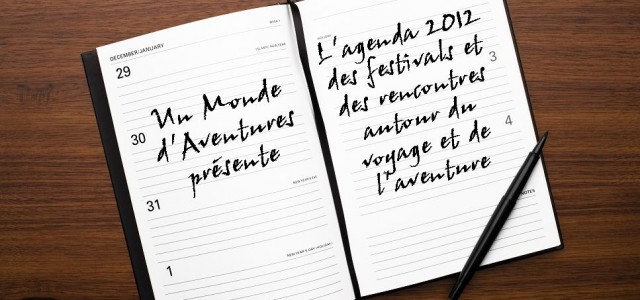 DECEMBER/JANUARY
29
Un Monde
30
d'Aventures
présente
31
1
L'agenda 2012
des festivals et
des rencontres
3
autour du
4
voyage et de
l'aventure
NOTES